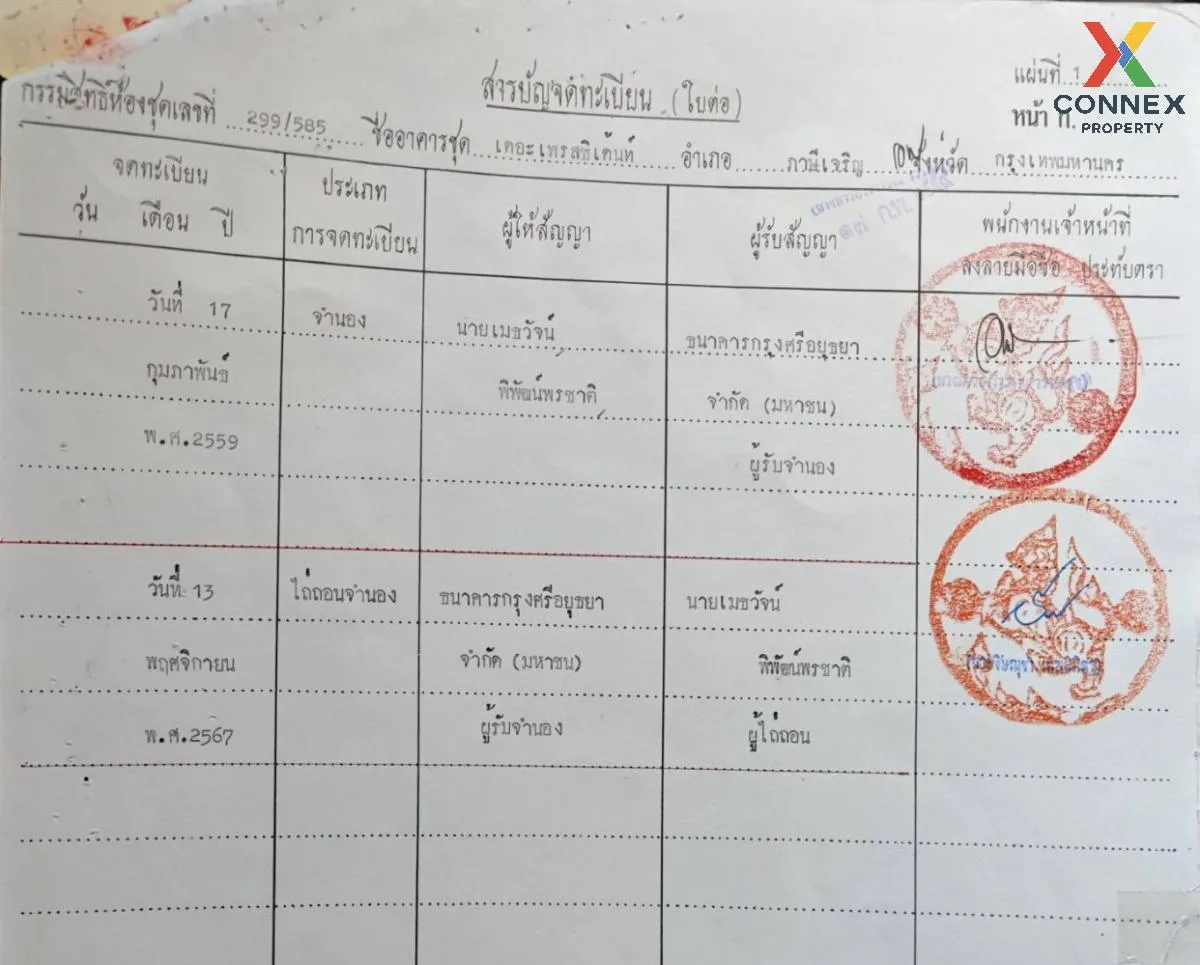 สารบัญจดทะเบียน (ใบต่อ)
แผ่นที่ 1
หน้า ก.
CONNEX
PROPERTY
กรรมสิทธิ์ห้องชุดเลขที่ 299/585 ชื่ออาคารชุด เดอะเพรสซิเด้นท์ อำเภอ ภาษีเจริญ จังหวัด กรุงเทพมหานคร
จดทะเบียน
วัน เดือน ปี
ประเภท
การจดทะเบียน
ผู้ให้สัญญา
ผู้รับสัญญา
พนักงานเจ้าหน้าที่
ลงลายมือชื่อ ประทับตรา
วันที่ 17
จำนอง
นายเมธวัจน์
ธนาคารกรุงศรีอยุธยา
กุมภาพันธ์
พิพัฒน์พรชาติ
จำกัด (มหาชน)
พ.ศ.2559
ผู้รับจำนอง
วันที่ 13
ไถ่ถอนจำนอง
ธนาคารกรุงศรีอยุธยา
นายเมธวัจน์
พฤศจิกายน
จำกัด (มหาชน)
พิพัฒน์พรชาติ
พ.ศ.2567
ผู้รับจำนอง
ผู้ไถ่ถอน